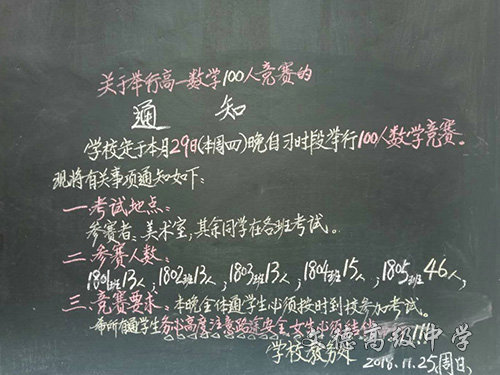 关于举行高一数学100人竞赛的
通 知
学校定于本月29日(本周四)晚自习时段举行100人数学竞赛。
现将有关事项通知如下:
一 考试地点:
参赛者:美术室,其余同学在各班考试。
二 参赛人数:
1801班13人,1802班13人,1803班13人,1804班15人,1805班46人,
三 竞赛要求:本晚全体通学生必须按时到校参加考试。
希所有通学生务必高度注意路途安全,女生必须结 !!!
学校教务处
2018.11.25(周日)
高级中学